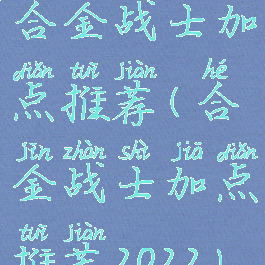 合金战士加
diǎn tuī jiàn hé
点推荐(合
jīn zhàn shì jiā diǎn
金战士加点
tuī jiàn
推荐2022)